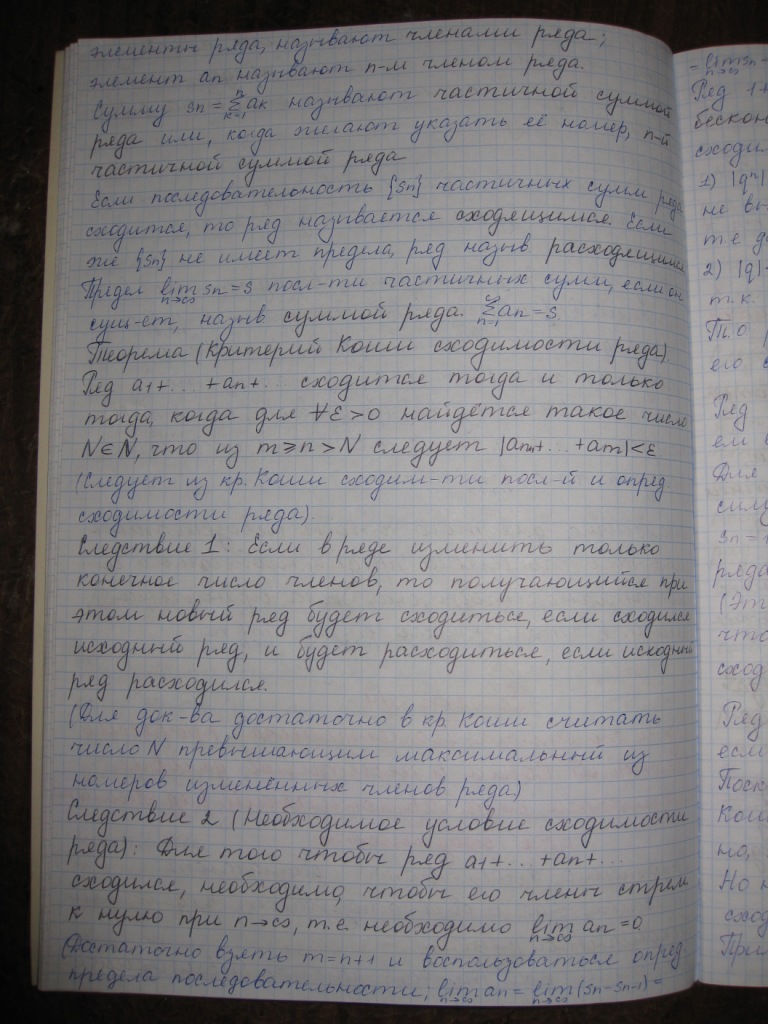 элементы ряда, называют членами ряда;
элемент an называют n-м членом ряда.
Сумму sn = n∑k=1 ak называют частичной суммой
ряда или, когда желают указать её номер, n-й
частичной суммой ряда
Если последовательность {sn} частичных сумм ряда
сходится, то ряд называется сходящимся. Если
же {sn} не имеет предела, ряд назыв расходящимся
Предел lim n→∞ sn = s посл-ти частичных сумм, если он
сущ-ет, назыв суммой ряда. ∞∑n=1 an = s.
Теорема (Критерий Коши сходимости ряда).
Ряд a1+...+an+... сходится тогда и только
тогда, когда для ∀ε>0 найдётся такое число
N∈N, что из m≥n>N следует |an+...+am|<ε
(Следует из кр. Коши сходим-ти посл-й и опред
сходимости ряда).
Следствие 1: Если в ряде изменить только
конечное число членов, то получающийся при
этом новый ряд будет сходиться, если сходился
исходный ряд, и будет расходиться, если исходный
ряд расходился.
(Для док-ва достаточно в кр. Коши считать
число N превышающим максимальный из
номеров изменённых членов ряда)
Следствие 2 (Необходимое условие сходимости
ряда): Для того чтобы ряд a1+...+an+...
сходился, необходимо, чтобы его члены стрем
к нулю при n→∞, т.е. необходимо lim n→∞ an = 0
(Достаточно взять m=n+1 и воспользоваться опред
предела последовательности; lim n→∞ an = lim n→∞ (sn-sn-1) =
= lim n→∞ sn -
Ряд 1+
бескон
сходи
1) |qⁿ|
не вы
т.е. д
2) |q|
т.к.
Т.о.
его
Ряд
ем
Для
силу
sn =
ряда
(Эт
что
сход
Ряд
если
Поск
Коши
но,
Но н
сход
При